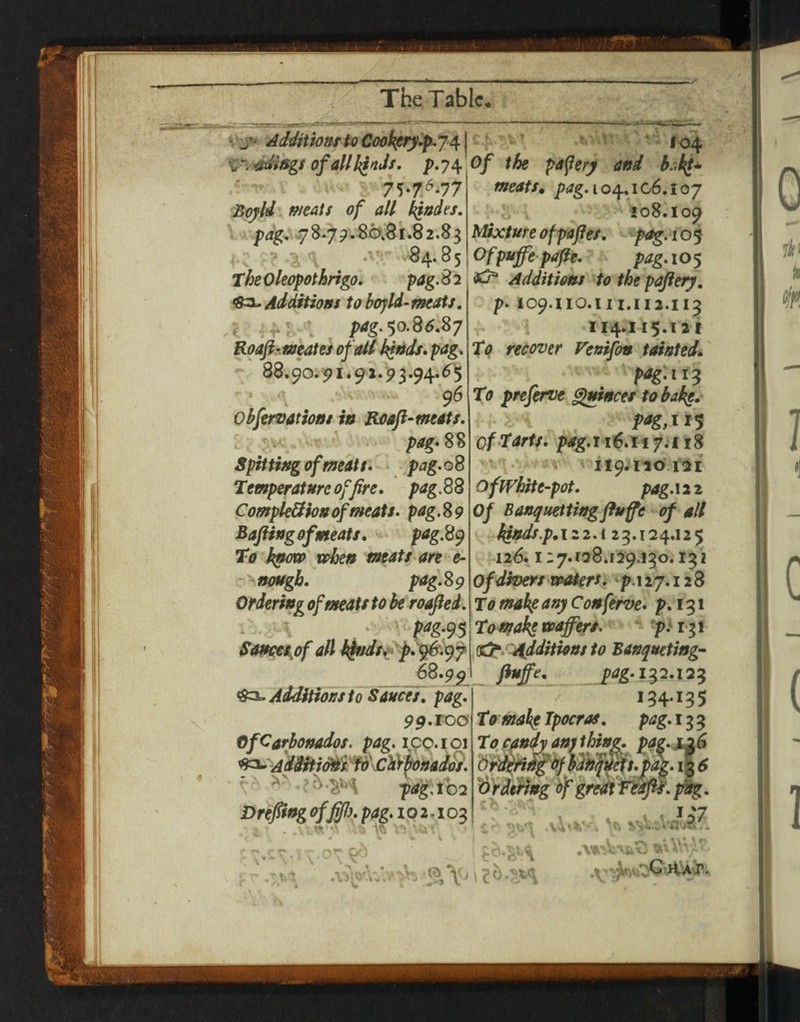 The Table.
☞ Additions to Cookery.p.74
Puddings of all kinds. p.74
75.76.77
Boyld meats of all kindes.
pag. 78.79.80.81.82.83
84.85
The Oleopothrigo. pag.82
Additions to boyld-meats.
pag.50.86.87
Roast-meates of all kinds. pag.
88.90.91.92.93.94.65
96
Observations in Roast-meats.
pag. 88
Spitting of meats. pag.08
Temperature of fire. pag.88
Complection of meats. pag.89
Basting of meats. pag.89
To know when meats are e-
nough. pag.89
Ordering of meats to be roasted.
pag.95
Sauces of all kinds. p.96.97
68.99
Additions to Sauces. pag.
99.100
Of Carbonados. pag. 100.101
Additions to Carbonados.
pag.102
Dressing of fish. pag. 102.103
104
Of the pastery and bakt-
meats. pag.104.106.107
108.109
Mixture of pastes. pag.105
Of puffe paste. pag.105
☞ Additions to the pastery.
p. 109.110.111.112.113
114.115.121
To recover Venison tainted.
pag.113
To preserve Quinces to bake.
pag,115
Of Tarts. pag.116.117.118
119.120 121
Of White-pot. pag.122
Of Banquetting stuffe of all
kinds.p.122.123.124.125
126.127.128.129.130.131
Of divers waters. p.127.128
To make any Conserve. p.131
To make wassers. p.131
☞ Additions to Banqueting-
stuffe. pag.132.123
134.135
To make Ipocras. pag.133
To candy any thing. pag.136
Ordering of banquets. pag.136
Ordering of great Feasts. pag.
137
CHAP.